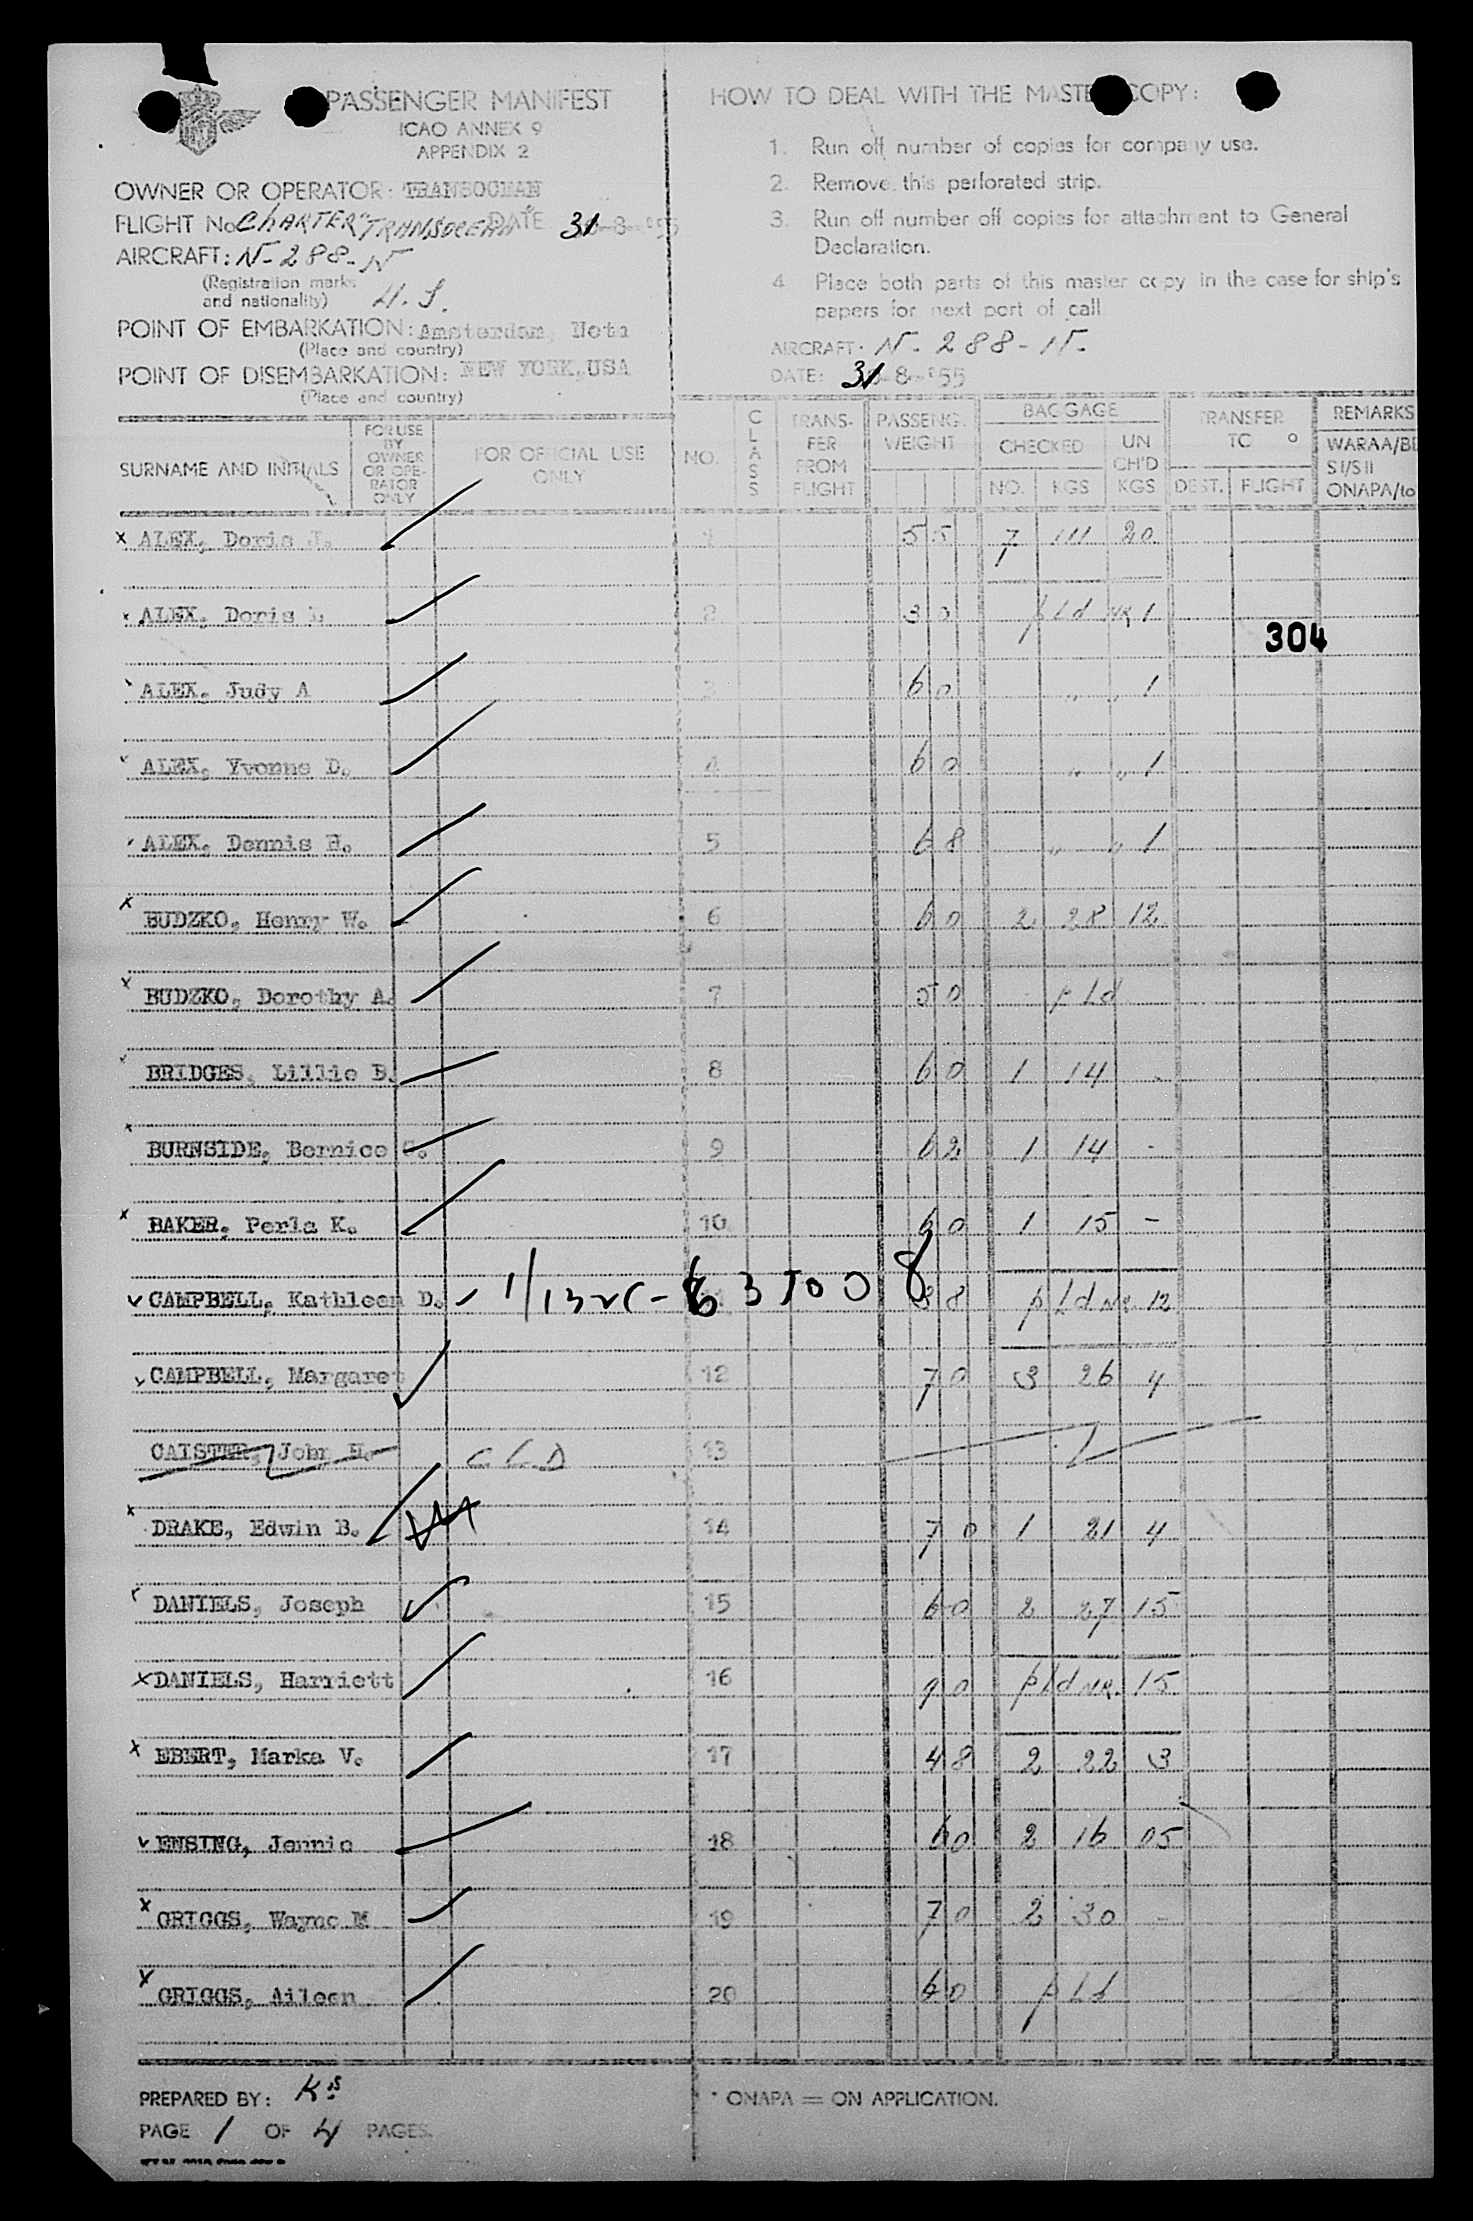 PASSENGER MANIFEST
ICAO ANNEX 9
APPENDIX 2
OWNER OR OPERATOR: TRANSOCEAN
FLIGHT No CHARTER TRANSOCEAN DATE 31-8-'55
AIRCRAFT: N-288-N
(Registration marks and nationality) U.S.
POINT OF EMBARKATION: Amsterdam, Neth
(Place and country)
POINT OF DISEMBARKATION: NEW YORK, USA
(Place and country)
HOW TO DEAL WITH THE MASTER COPY:
1. Run off number of copies for company use.
2. Remove this perforated strip.
3. Run off number off copies for attachment to General
Declaration.
4 Place both parts of this master copy in the case for ship's
papers for next port of call
AIRCRAFT: N-288-N-
DATE: 31-8-'55
SURNAME AND INITIALS FOR USE BY OWNER OR OPERATOR ONLY FOR OFFICIAL USE ONLY NO. CLASS TRANSFER FROM FLIGHT PASSENG. WEIGHT BAGGAGE CHECKED NO. KGS UN CH'D KGS TRANSFER TO DEST. FLIGHT REMARKS WARAA/BE SI/SII ONAPA/to
x ALEX, Doris J. 1 55 7 111 20
x ALEX, Doris 2 30 pld NR 1
304
ALEX, Judy A 3 60 " " 1
ALEX, Yvonne D. 4 60 " " 1
ALEX, Dennis H. 5 68 " " 1
x BUDZKO, Henry W. 6 60 2 28 12
x BUDZKO, Dorothy A. 7 50 pld
BRIDGES, Lillie B. 8 60 1 14 -
x BURNSIDE, Bernice 9 62 1 14 -
x BAKER, Perla K. 10 60 1 15 -
CAMPBELL, Kathleen D. 11 38 pld NR 12
CAMPBELL, Margaret 12 70 3 26 4
CAISTER, John H. CLD 13
x DRAKE, Edwin B. 14 70 1 21 4
DANIELS, Joseph 15 60 2 27 15
x DANIELS, Harriett 16 90 pld NR. 15
x EBERT, Marka V. 17 48 2 22 3
ENSING, Jennie 18 60 2 16 05
x GRIGGS, Wayne M 19 70 2 30 -
x GRIGGS, Aileen 20 60 pld
PREPARED BY:
* ONAPA = ON APPLICATION.
PAGE 1 OF 4 PAGES.